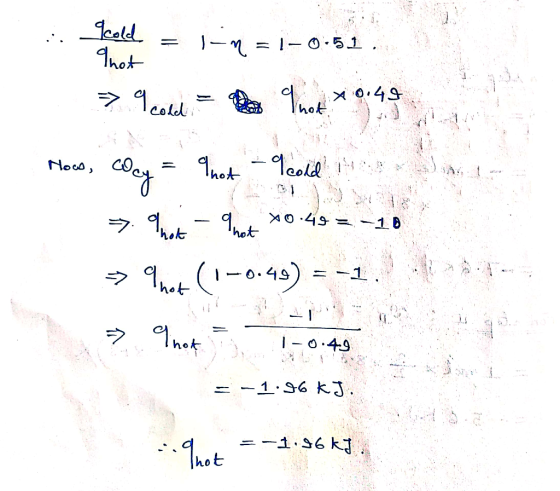 ∴ q_cold / q_hot = 1 - η = 1 - 0.51.
⇒ q_cold = q_hot × 0.49
Now, ω_cy = q_hot - q_cold
⇒ q_hot - q_hot × 0.49 = -1
⇒ q_hot (1 - 0.49) = -1.
⇒ q_hot = -1 / 1 - 0.49
= -1.96 kJ.
∴ q_hot = -1.96 kJ.